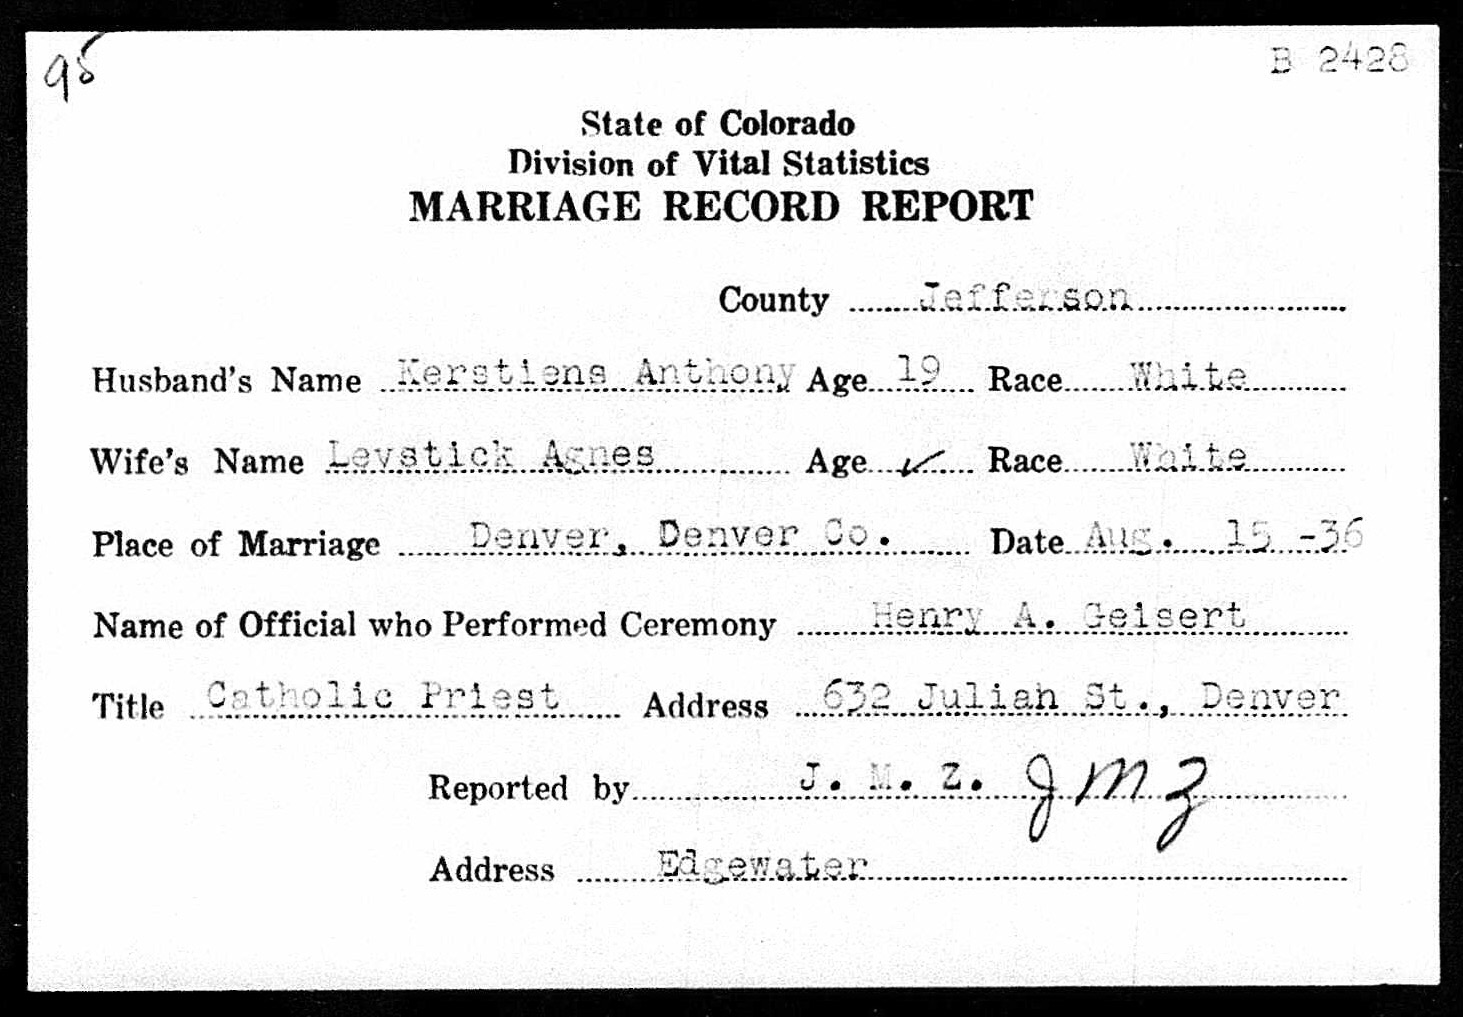 95
B 2428
State of Colorado
Division of Vital Statistics
MARRIAGE RECORD REPORT
County Jefferson
Husband's Name Kerstiens Anthony Age 19 Race White
Wife's Name Levstick Agnes Age ✓ Race White
Place of Marriage Denver, Denver Co. Date Aug. 15 -36
Name of Official who Performed Ceremony Henry A. Geisert
Title Catholic Priest Address 632 Julian St., Denver
Reported by J. M. Z. JMZ
Address Edgewater